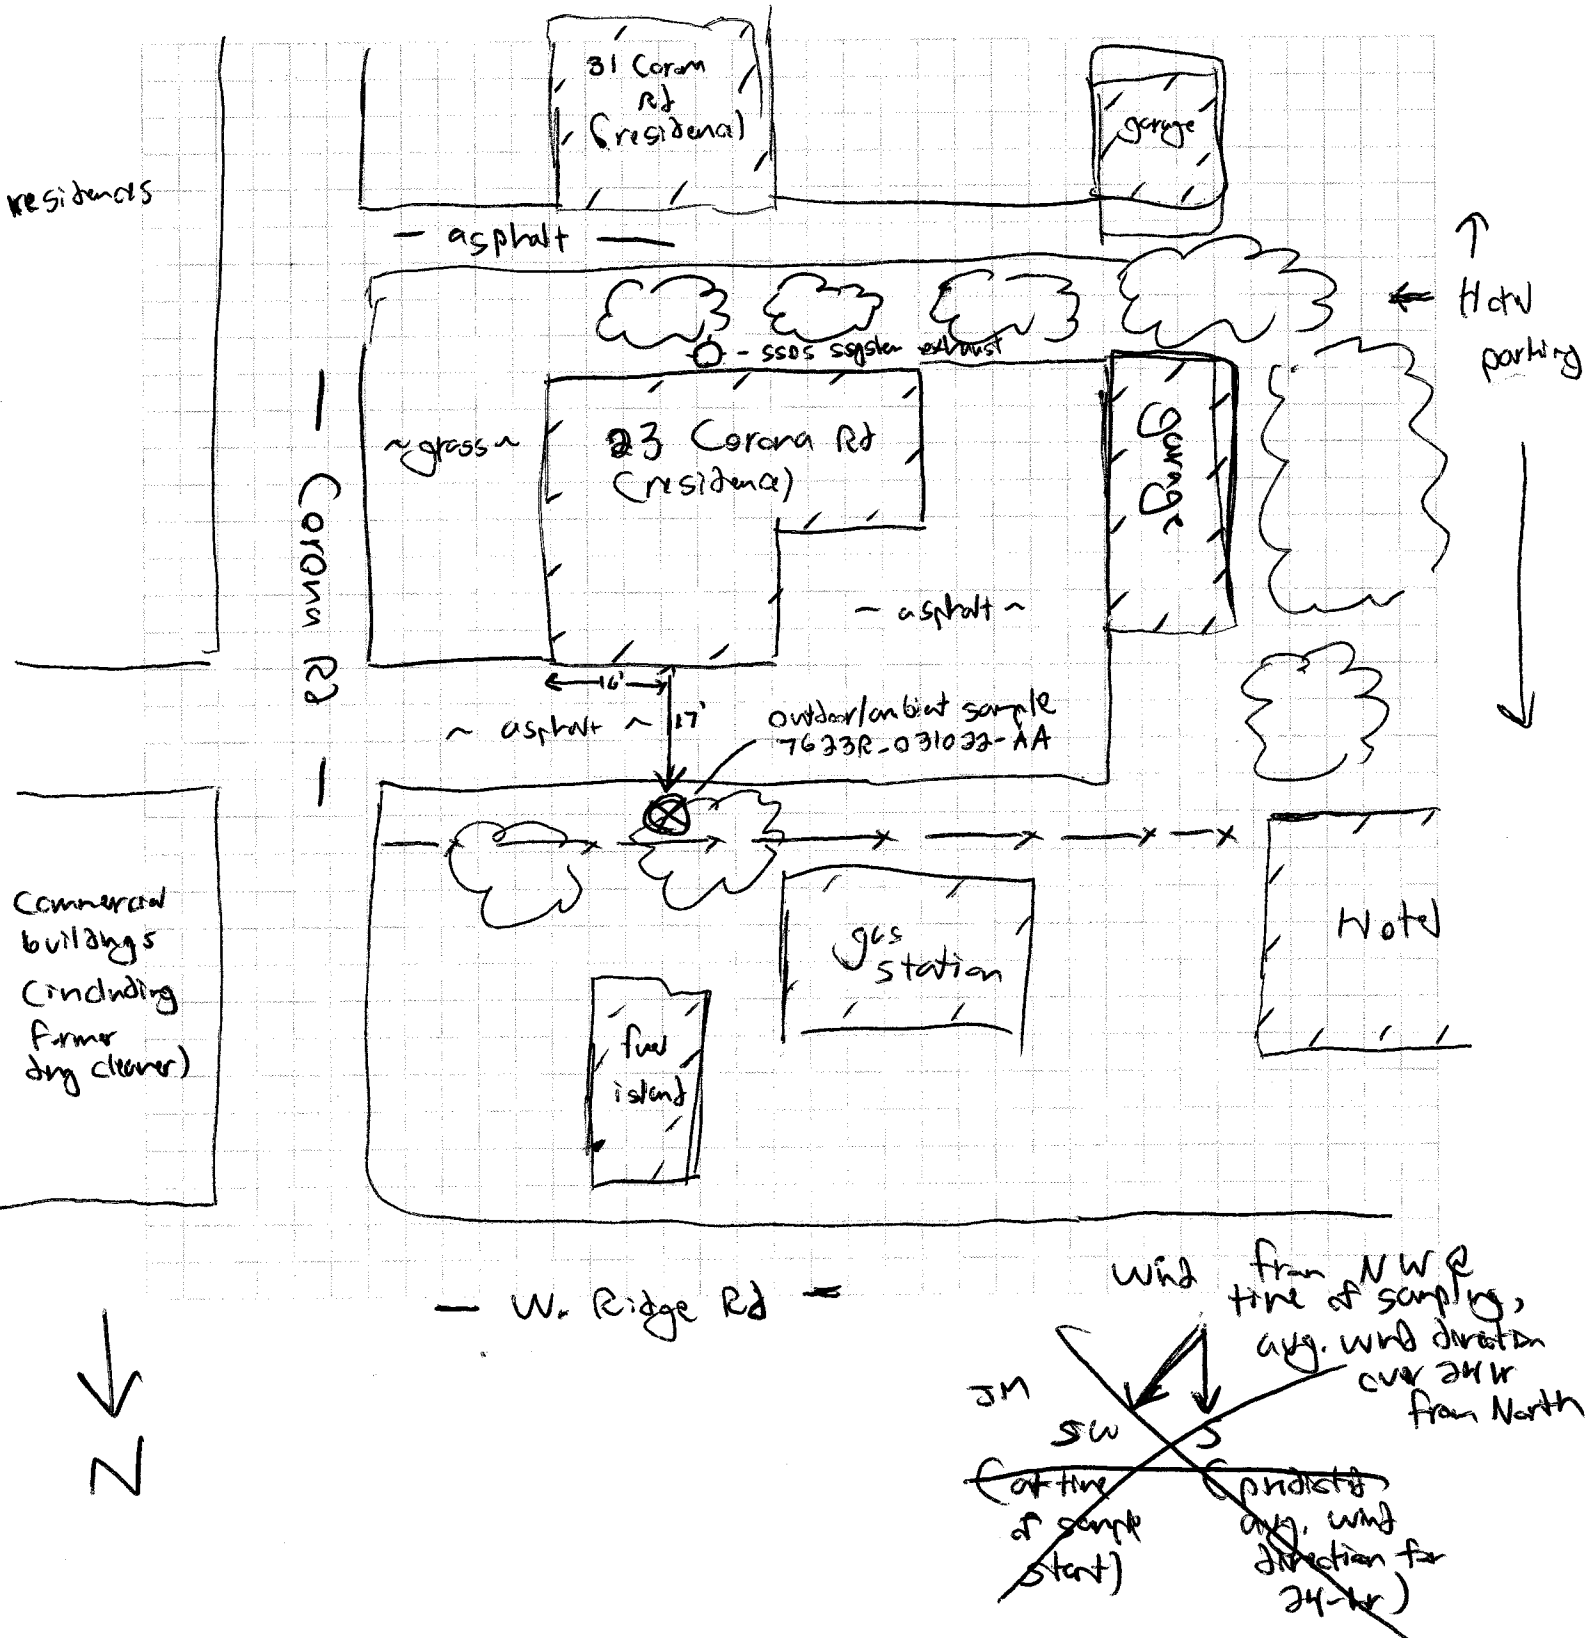 31 Corona
Rd
(residence)
garage
residences
— asphalt —
↑
Hotel
parking
- SSDS ssystem exhaust
~grass~
23 Corona Rd
(residence)
garage
— Corona Rd —
~ asphalt ~
16'
~ asphalt ~
17'
outdoor/ambient sample
7623R_031022-AA
Commercial
buildings
(including
former
dry cleaner)
gas
station
Hotel
fuel
island
— W. Ridge Rd —
Wind from NW @
time of sampling,
avg. wind direction
over 24 hr
from North
JM
SW
S
(at time
of sample
start)
(predicted
avg. wind
direction for
24-hr)
N